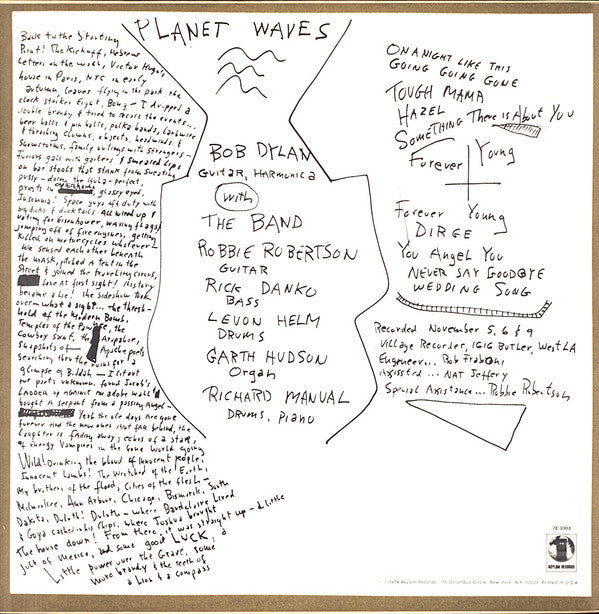 PLANET WAVES
Back to the Starting
Point! The Kickoff, Hebrew
Letters on the wall, Victor Hugo's
house in Paris, NYC in early
autumn, leaves flying in the park, the
clock strikes Eight, Bong - I dropped a
double brandy & tried to recall the events...
beer halls & pin balls, polka bands, barbwire
& thrashing clowns, objects, headwinds &
snowstorms, family outings with strangers -
Furious gals with garters & smeared lips
on bar stools that stank from sweating
pussy - doing the Hula - perfect,
priests in overhauls, glassy eyed,
Insomnia! Space guys off duty with
big dicks & ducktails all wired up &
voting for Eisenhower, waving flags &
jumping off of fire engines, getting
killed on motorcycles whatever -
We sensed each other beneath
the mask, pitched a tent in the
Street & joined the traveling circus,
love at first sight! History
became a lie! the sideshow took
over - what a sight... the thresh-
hold of the Modern Bomb,
Temples of the Pawnee, the
Cowboy Saint, the Arapahoe,
snapshots of Apache poets
searching thru the ruins for a
glimpse of Buddah - I lit out
for parts unknown, found Jacob's
Ladder up against an adobe wall &
bought a serpent from a passing Angel -
Yeah the ole days are gone
forever and the new ones ain't far behind, the
Laughter is fading away, echos of a star,
of Energy Vampires in the Gone World going
Wild! Drinking the blood of innocent people,
Innocent Lambs! The Wretched of the Earth,
My brothers of the flood, Cities of the flesh -
Milwaukee, Ann Arbor, Chicago, Bismarck, South
Dakota, Duluth! Duluth - where Baudelaire Lived
& Goya cashed in his chips, where Joshua brought
The house down! From there, it was straight up - a little
jolt of Mexico, and some good LUCK, a
Little power over the Grave, some
more brandy & the teeth of
a Lion & a compass
BOB DYLAN
GUITAR, HARMONICA
with
THE BAND
ROBBIE ROBERTSON
GUITAR
RICK DANKO
BASS
LEVON HELM
DRUMS
GARTH HUDSON
Organ
RICHARD MANUAL
DRUMS, PIANO
ON A NIGHT LIKE THIS
GOING GOING GONE
TOUGH MAMA
HAZEL
SOMETHING There is About You
Forever Young
Forever Young
DIRGE
You Angel You
NEVER SAY GOODBYE
WEDDING SONG
Recorded November 5, 6 & 9
Village Recorder, 1616 Butler, West LA
Engineer... Rob Fraboni
Assissted... NAT Jeffery
Special Assistance... Robbie Robertson
7E-1003
ASYLUM RECORDS
1974 Asylum Records · 15 Columbus Circle, New York, N.Y. 10023. Printed in U.S.A.